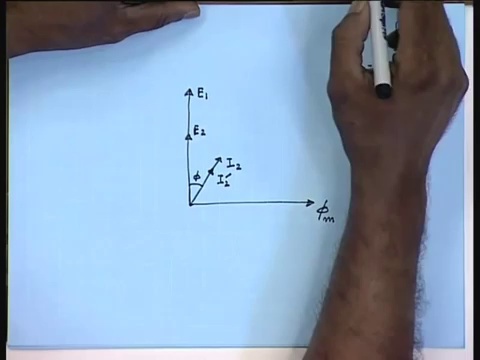 E₁
E₂
I₂
ϕ
I₂′
ϕₘ